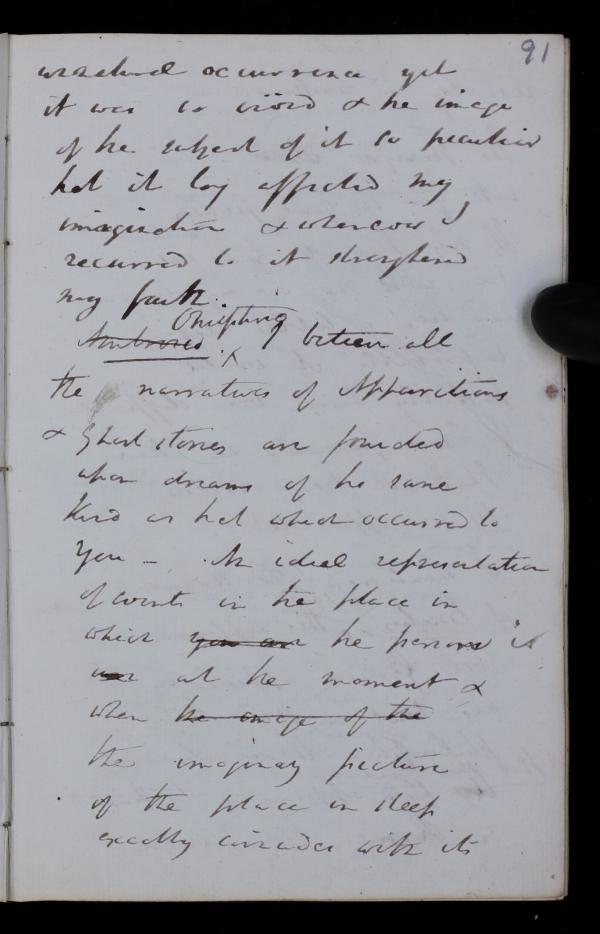 91
unnatural occurrence yet
it was so vivid & the image
of the subject of it so peculiar
that it long affected my
imagination & whenever I
recurred to it strengthened
my faith.
Onuphrio
Ambrosio X
I believe all
the narratives of Apparitions
& Ghost stories are founded
upon dreams of the same
kind as that which occurred to
you – An ideal representation
of events in the place in
which you are the person is
at the moment &
when the image of the
the imaginary picture
of the place in sleep
exactly coincides with its